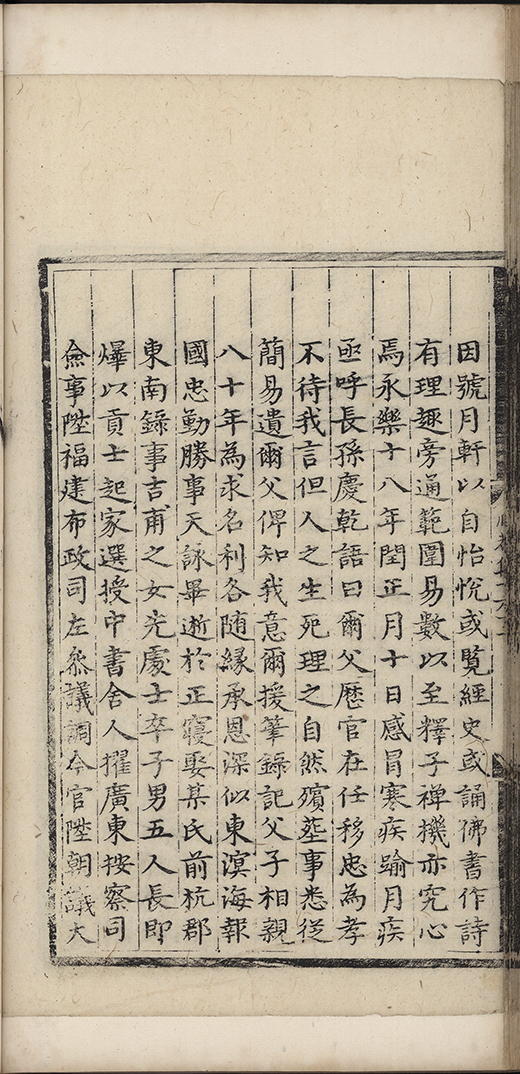 因號月軒以自怡悅或覽經史或誦佛書作詩
有理趣旁通範圍易數以至釋子禪機亦究心
焉永樂十八年閏正月十日感冒寒疾踰月疾
亟呼長孫慶乾語曰爾父歷官在任移忠為孝
不待我言但人之生死理之自然殯塟事悉從
簡易遺爾父俾知我意爾援筆錄記父子相親
八十年為求名利各随緣承恩深似東溟海報
國忠勤勝事天詠畢逝於正寢娶某氏前杭郡
東南錄事吉甫之女先處士卒子男五人長即
爗以貢士起家選授中書舍人擢廣東按察司
僉事陞福建布政司左叅議調今官陞朝議大